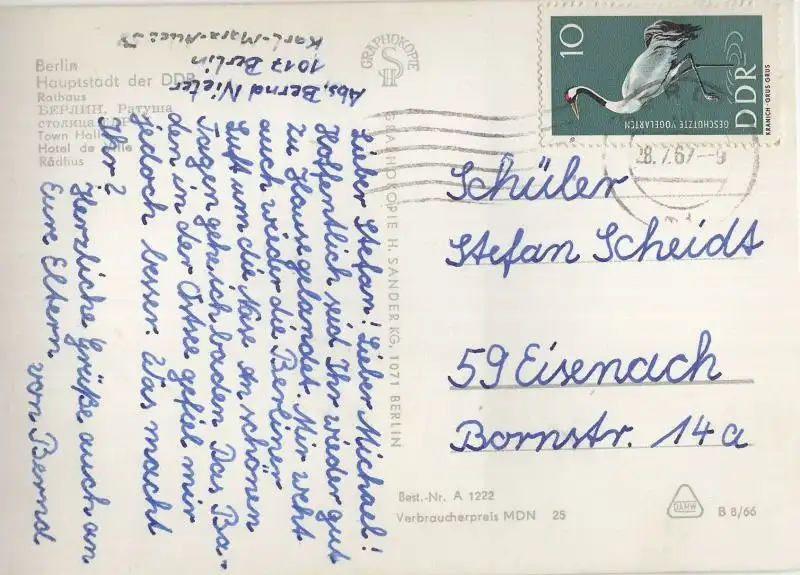 Berlin
Hauptstadt der DDR
Rathaus
БЕРЛИН, Ратуша
столица
Town Hall
Hotel de Ville
Rådhus
Abs. Bernd Nieter
1017 Berlin
Karl-Marx-Allee
Lieber Stefan! Lieber Michael!
Hoffentlich seid Ihr wieder gut
zu Hause gelandet. Mir weht
auch wieder die Berliner
Luft um die Nase. An schönen
Tagen geh ich baden. Das Ba-
den in der Ostsee gefiel mir
jedoch besser. Was macht
Ihr?
Herzliche Grüße auch an
Eure Eltern
von Bernd
GRAPHOKOPIE
H S
GRAPHOKOPIE H. SANDER KG, 1071 BERLIN
10
GESCHÜTZTE VOGELARTEN
DDR
KRANICH · GRUS GRUS
28.7.67-9
Schüler
Stefan Scheidt
59 Eisenach
Bornstr. 14a
Best.-Nr. A 1222
Verbraucherpreis MDN 25
DAMW
B 8/66